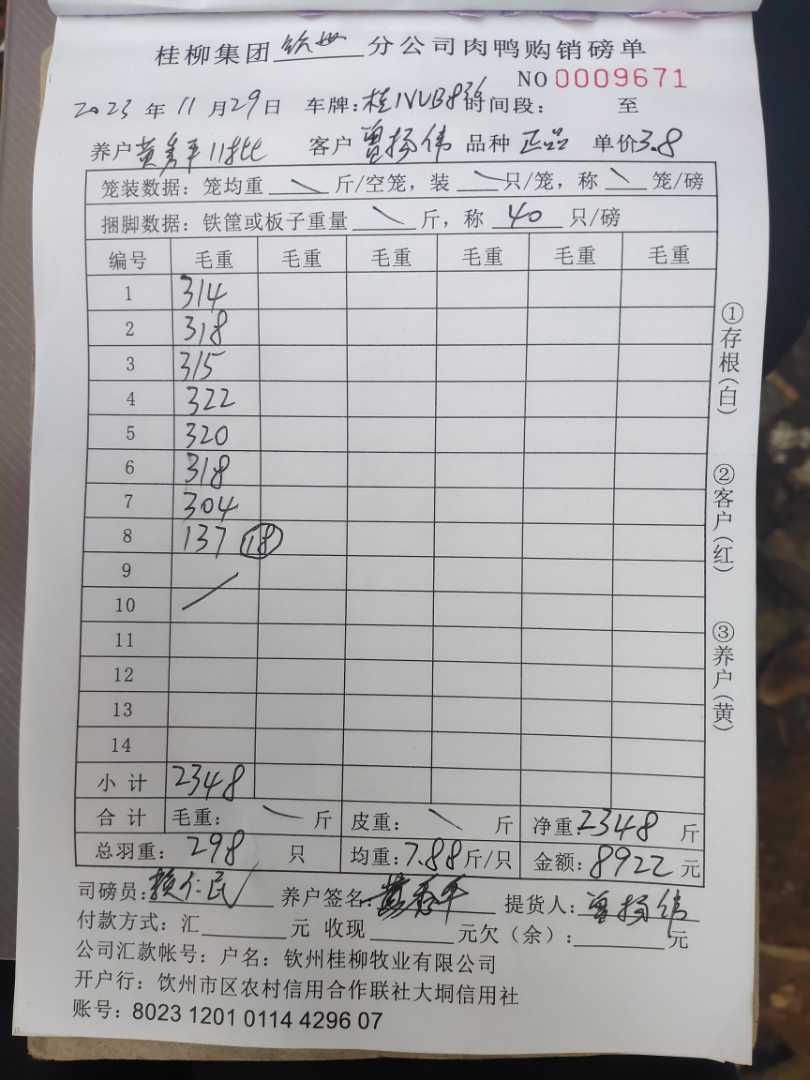 桂柳集团 钦州 分公司肉鸭购销磅单
NO 0009671
2023 年 11 月 29 日 车牌: 桂NUB836 时间段: 至
养户 黄秀平11批 客户 曾扬伟 品种 正品 单价3.8
笼装数据: 笼均重 \ 斤/空笼, 装 \ 只/笼, 称 \ 笼/磅
捆脚数据: 铁筐或板子重量 \ 斤, 称 40 只/磅
编号 毛重 毛重 毛重 毛重 毛重 毛重
1 314
2 318
3 315
4 322
5 320
6 318
7 304
8 137 18
9
10 /
11
12
13
14
小 计 2348
合 计 毛重: \ 斤 皮重: \ 斤 净重: 2348 斤
总羽重: 298 只 均重: 7.88 斤/只 金额: 8922 元
司磅员: 赖仁民 养户签名: 黄秀平 提货人: 曾扬伟
付款方式: 汇 元 收现 元欠(余): 元
公司汇款帐号: 户名: 钦州桂柳牧业有限公司
开户行: 饮州市区农村信用合作联社大垌信用社
账号: 8023 1201 0114 4296 07
①存根(白)
②客户(红)
③养户(黄)